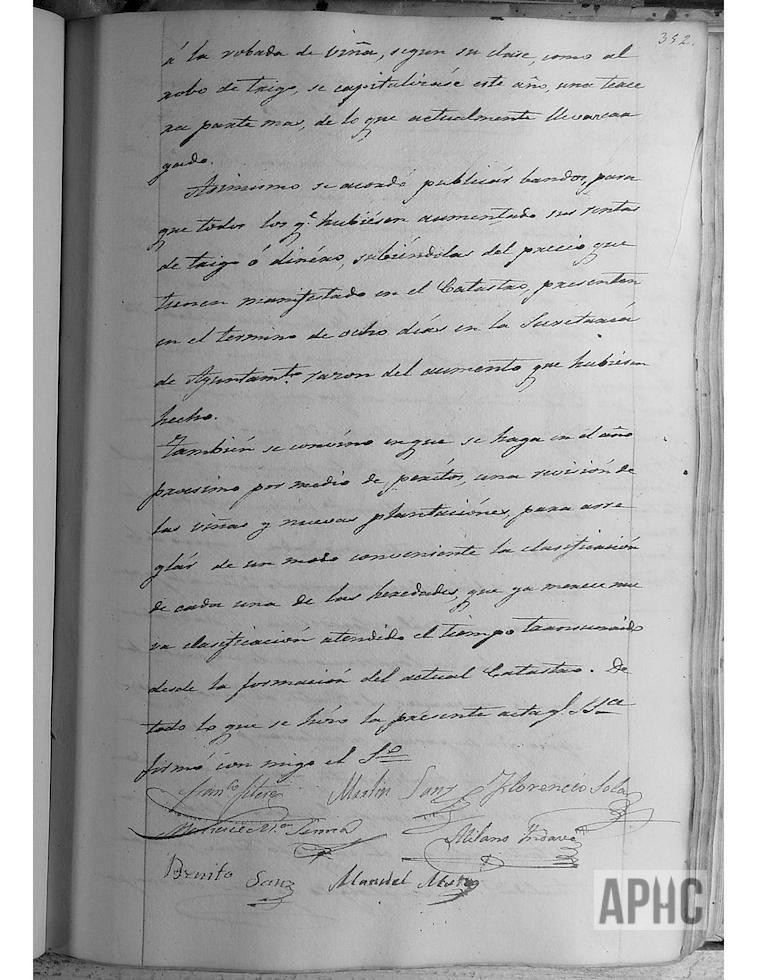 352.
á la robada de viña, segun su clase, como al
robo de trigo, se capitalizáse este año, una terce
ra parte mas, de lo que actualmente llevan car
gado.
Asimismo se acordó publicár bandos, para
que todos los q.e hubiésen aumentado sus rentas
de trigo ó dinéro, subiéndolas del precio que
tienen manifestado en el Catastro, presenten
en el termino de ocho dias en la Secretaría
de Ayuntam.to razon del aumento que hubiésen
hecho.
También se convino en que se haga en el año
procsimo por medio de peritos, una revisión de
las viñas y nuevas plantaciónes, para arre
glár de un modo conveniente la clasificación
de cada una de las heredades, que ya merece nue
va clasificación atendido el tiempo transcurrido
desde la formación del actual Catastro. De
todo lo que se hizo la presente acta q.e
firmó con migo el S.o
Martin Sanz Florencio Sola
Milano
Benito Sanz Manuel
APHC